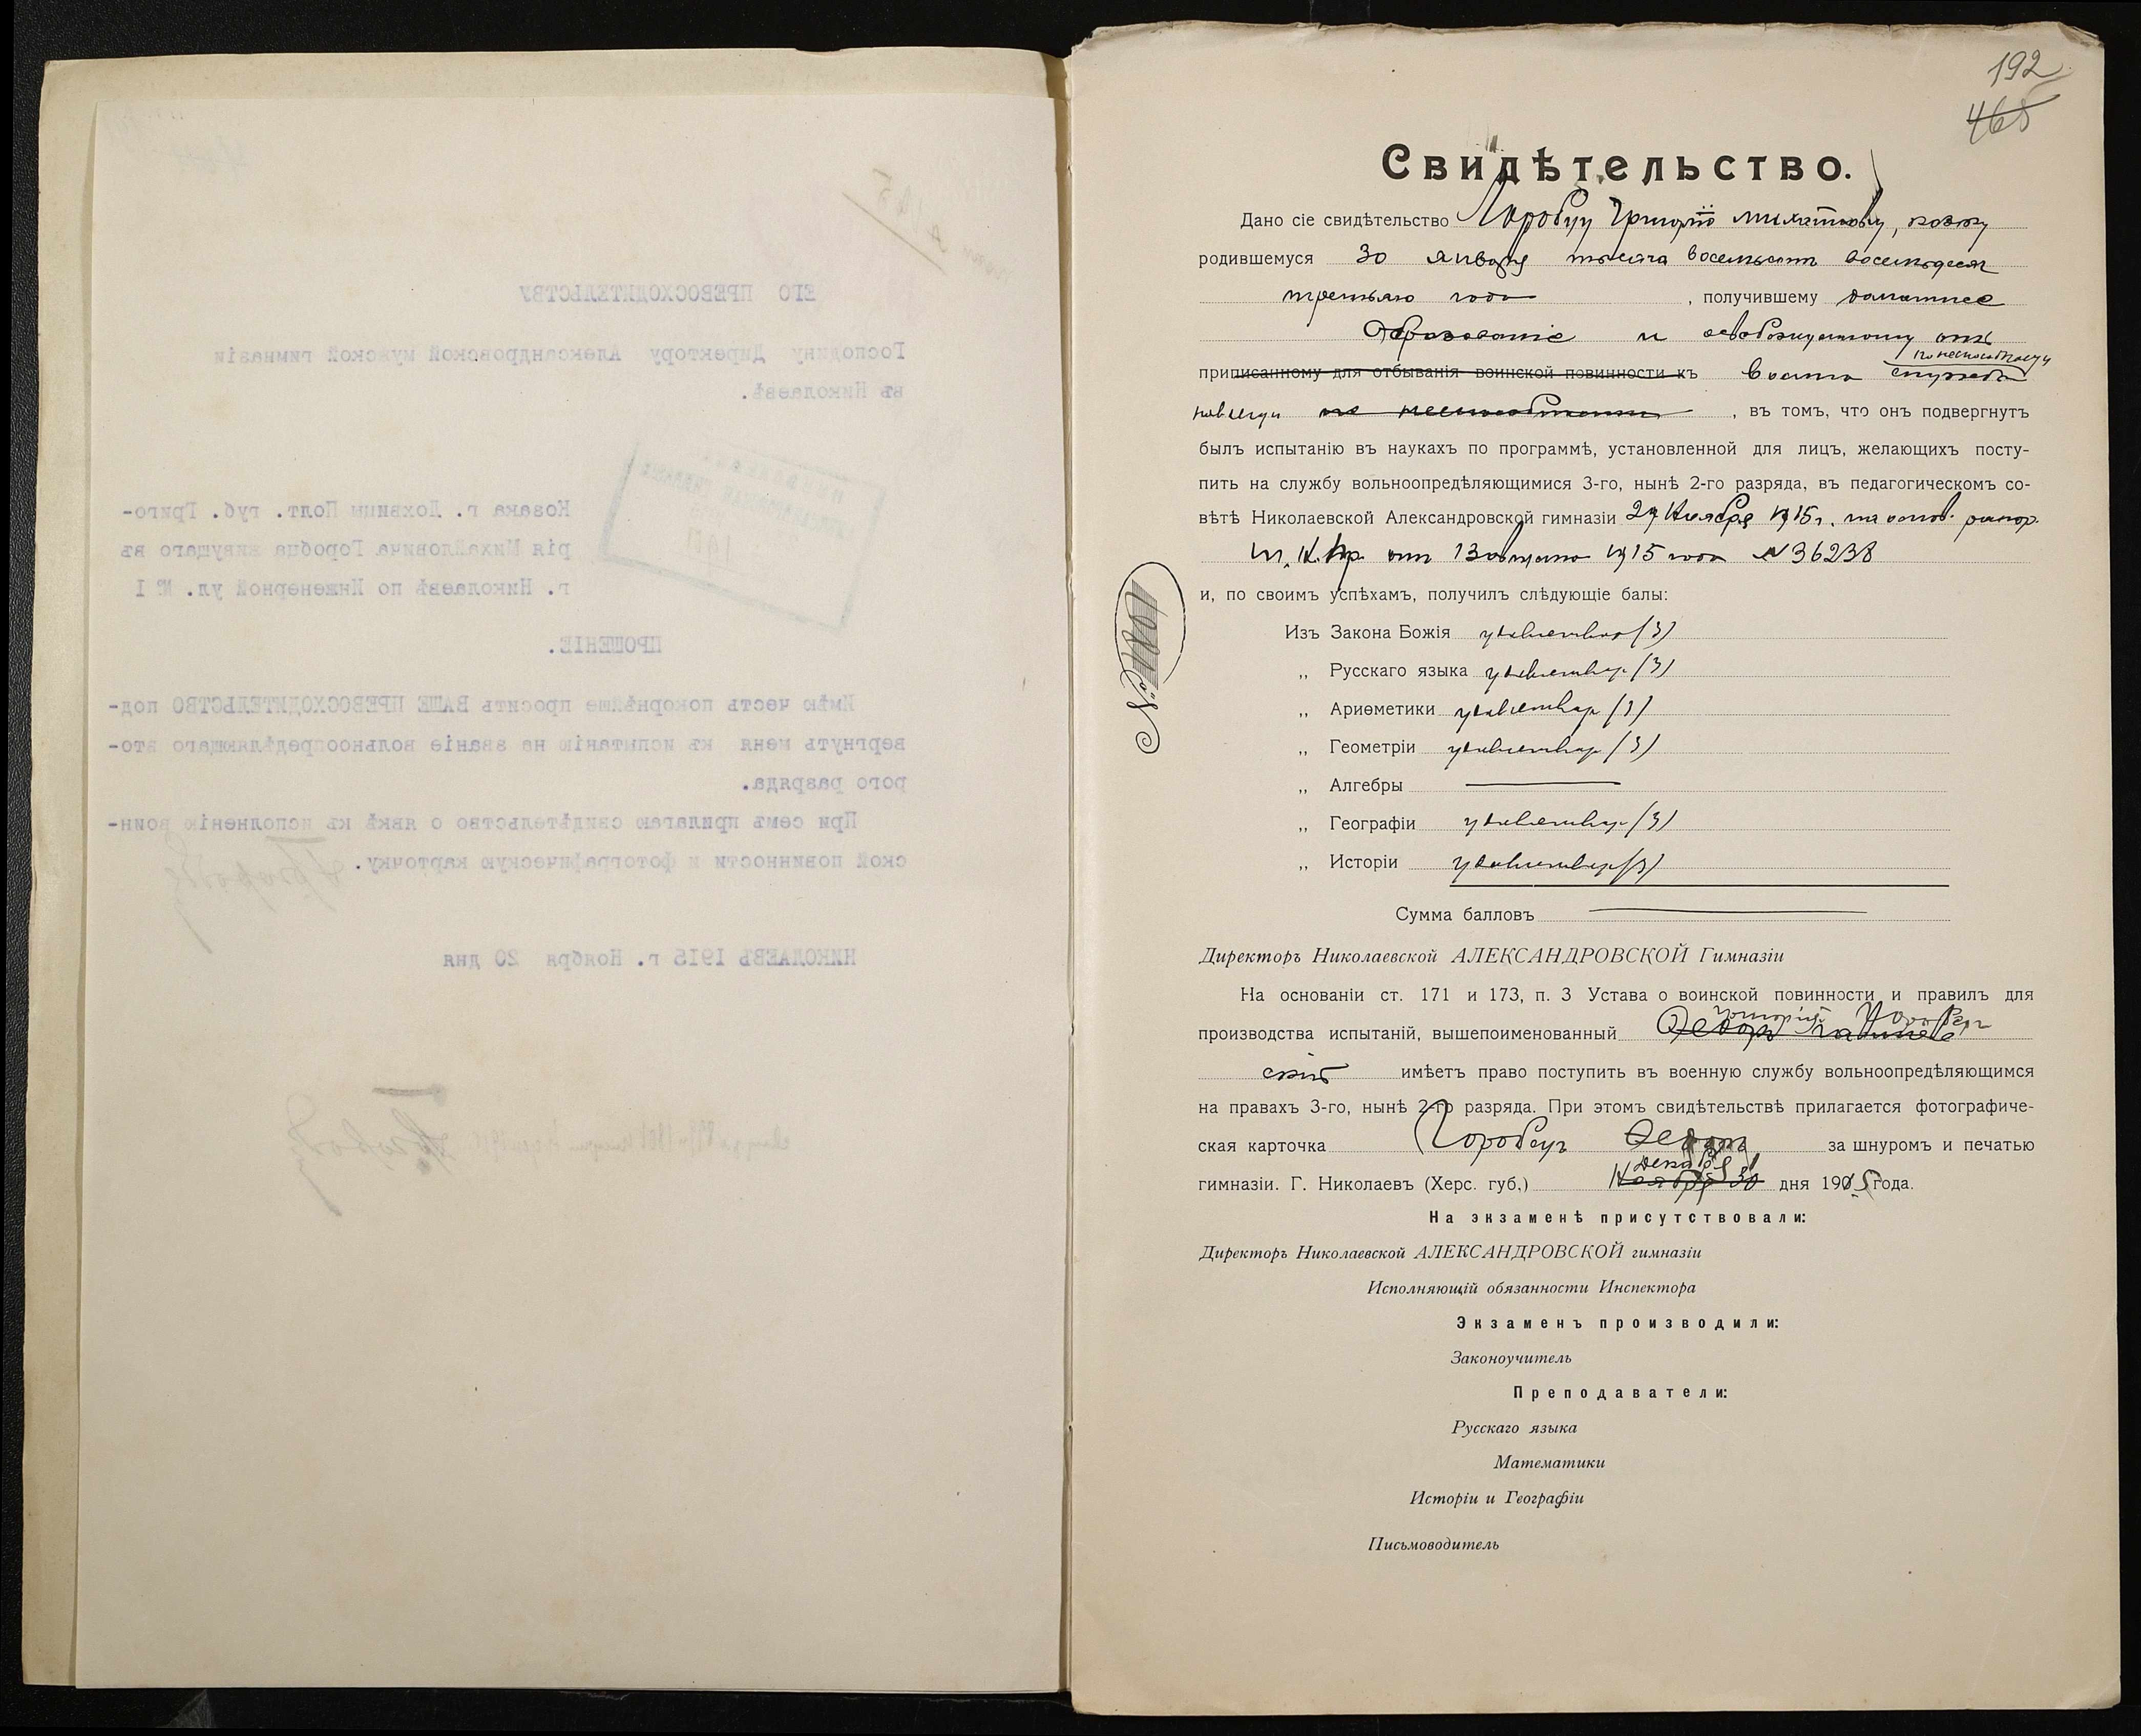 ЕГО ПРЕВОСХОДИТЕЛЬСТВУ
Господину Директору Александровской мужской гимназіи
въ Николаевѣ.
Козака г. Лохвицы Полт. губ. Григо-
рія Михайловича Горобца живущаго въ
г. Николаевѣ по Инженерной ул. № I
ПРОШЕНІЕ.
Имѣю честь покорнѣйше просить ВАШЕ ПРЕВОСХОДИТЕЛЬСТВО под-
вергнуть меня къ испытанію на званіе вольноопредѣляющаго вто-
рого разряда.
При семъ прилагаю свидѣтельство о явкѣ къ исполненію воин-
ской повинности и фотографическую карточку.
НИКОЛАЕВЪ 1915 г. Ноября 20 дня
192
465
Свидѣтельство.
Дано сіе свидѣтельство Горобцу Григорію Михайлову, козаку
родившемуся 30 января тысяча восемьсотъ восемьдесят
третьяго года , получившему домашнее
образованіе и освобожденному отъ
по неспособности
приписанному для отбыванія воинской повинности къ воинской службы
навсегда по неспособности , въ томъ, что онъ подвергнутъ
былъ испытанію въ наукахъ по программѣ, установленной для лицъ, желающихъ посту-
пить на службу вольноопредѣляющимися 3-го, нынѣ 2-го разряда, въ педагогическомъ со-
вѣтѣ Николаевской Александровской гимназіи 27 Ноября 1915 г. на основ.
от 13 августа 1915 года № 36238
и, по своимъ успѣхамъ, получилъ слѣдующіе балы:
Изъ Закона Божія удовлетвор (3)
„ Русскаго языка удовлетвор. (3)
„ Ариѳметики удовлетвор (3)
„ Геометріи удовлетвор (3)
„ Алгебры
„ Географіи удовлетвор (3)
„ Исторіи удовлетвор (3)
Сумма балловъ
№
Директоръ Николаевской АЛЕКСАНДРОВСКОЙ Гимназіи
На основаніи ст. 171 и 173, п. 3 Устава о воинской повинности и правилъ для
Григорій Горобец
производства испытаній, вышепоименованный Ѳедоръ
скій имѣетъ право поступить въ военную службу вольноопредѣляющимся
на правахъ 3-го, нынѣ 2-го разряда. При этомъ свидѣтельствѣ прилагается фотографиче-
ская карточка Горобцу за шнуромъ и печатью
Декабря 1
гимназіи. Г. Николаевъ (Херс. губ.) Ноября 30 дня 1915 года.
На экзаменѣ присутствовали:
Директоръ Николаевской АЛЕКСАНДРОВСКОЙ гимназіи
Исполняющій обязанности Инспектора
Экзаменъ производили:
Законоучитель
Преподаватели:
Русскаго языка
Математики
Исторіи и Географіи
Письмоводитель